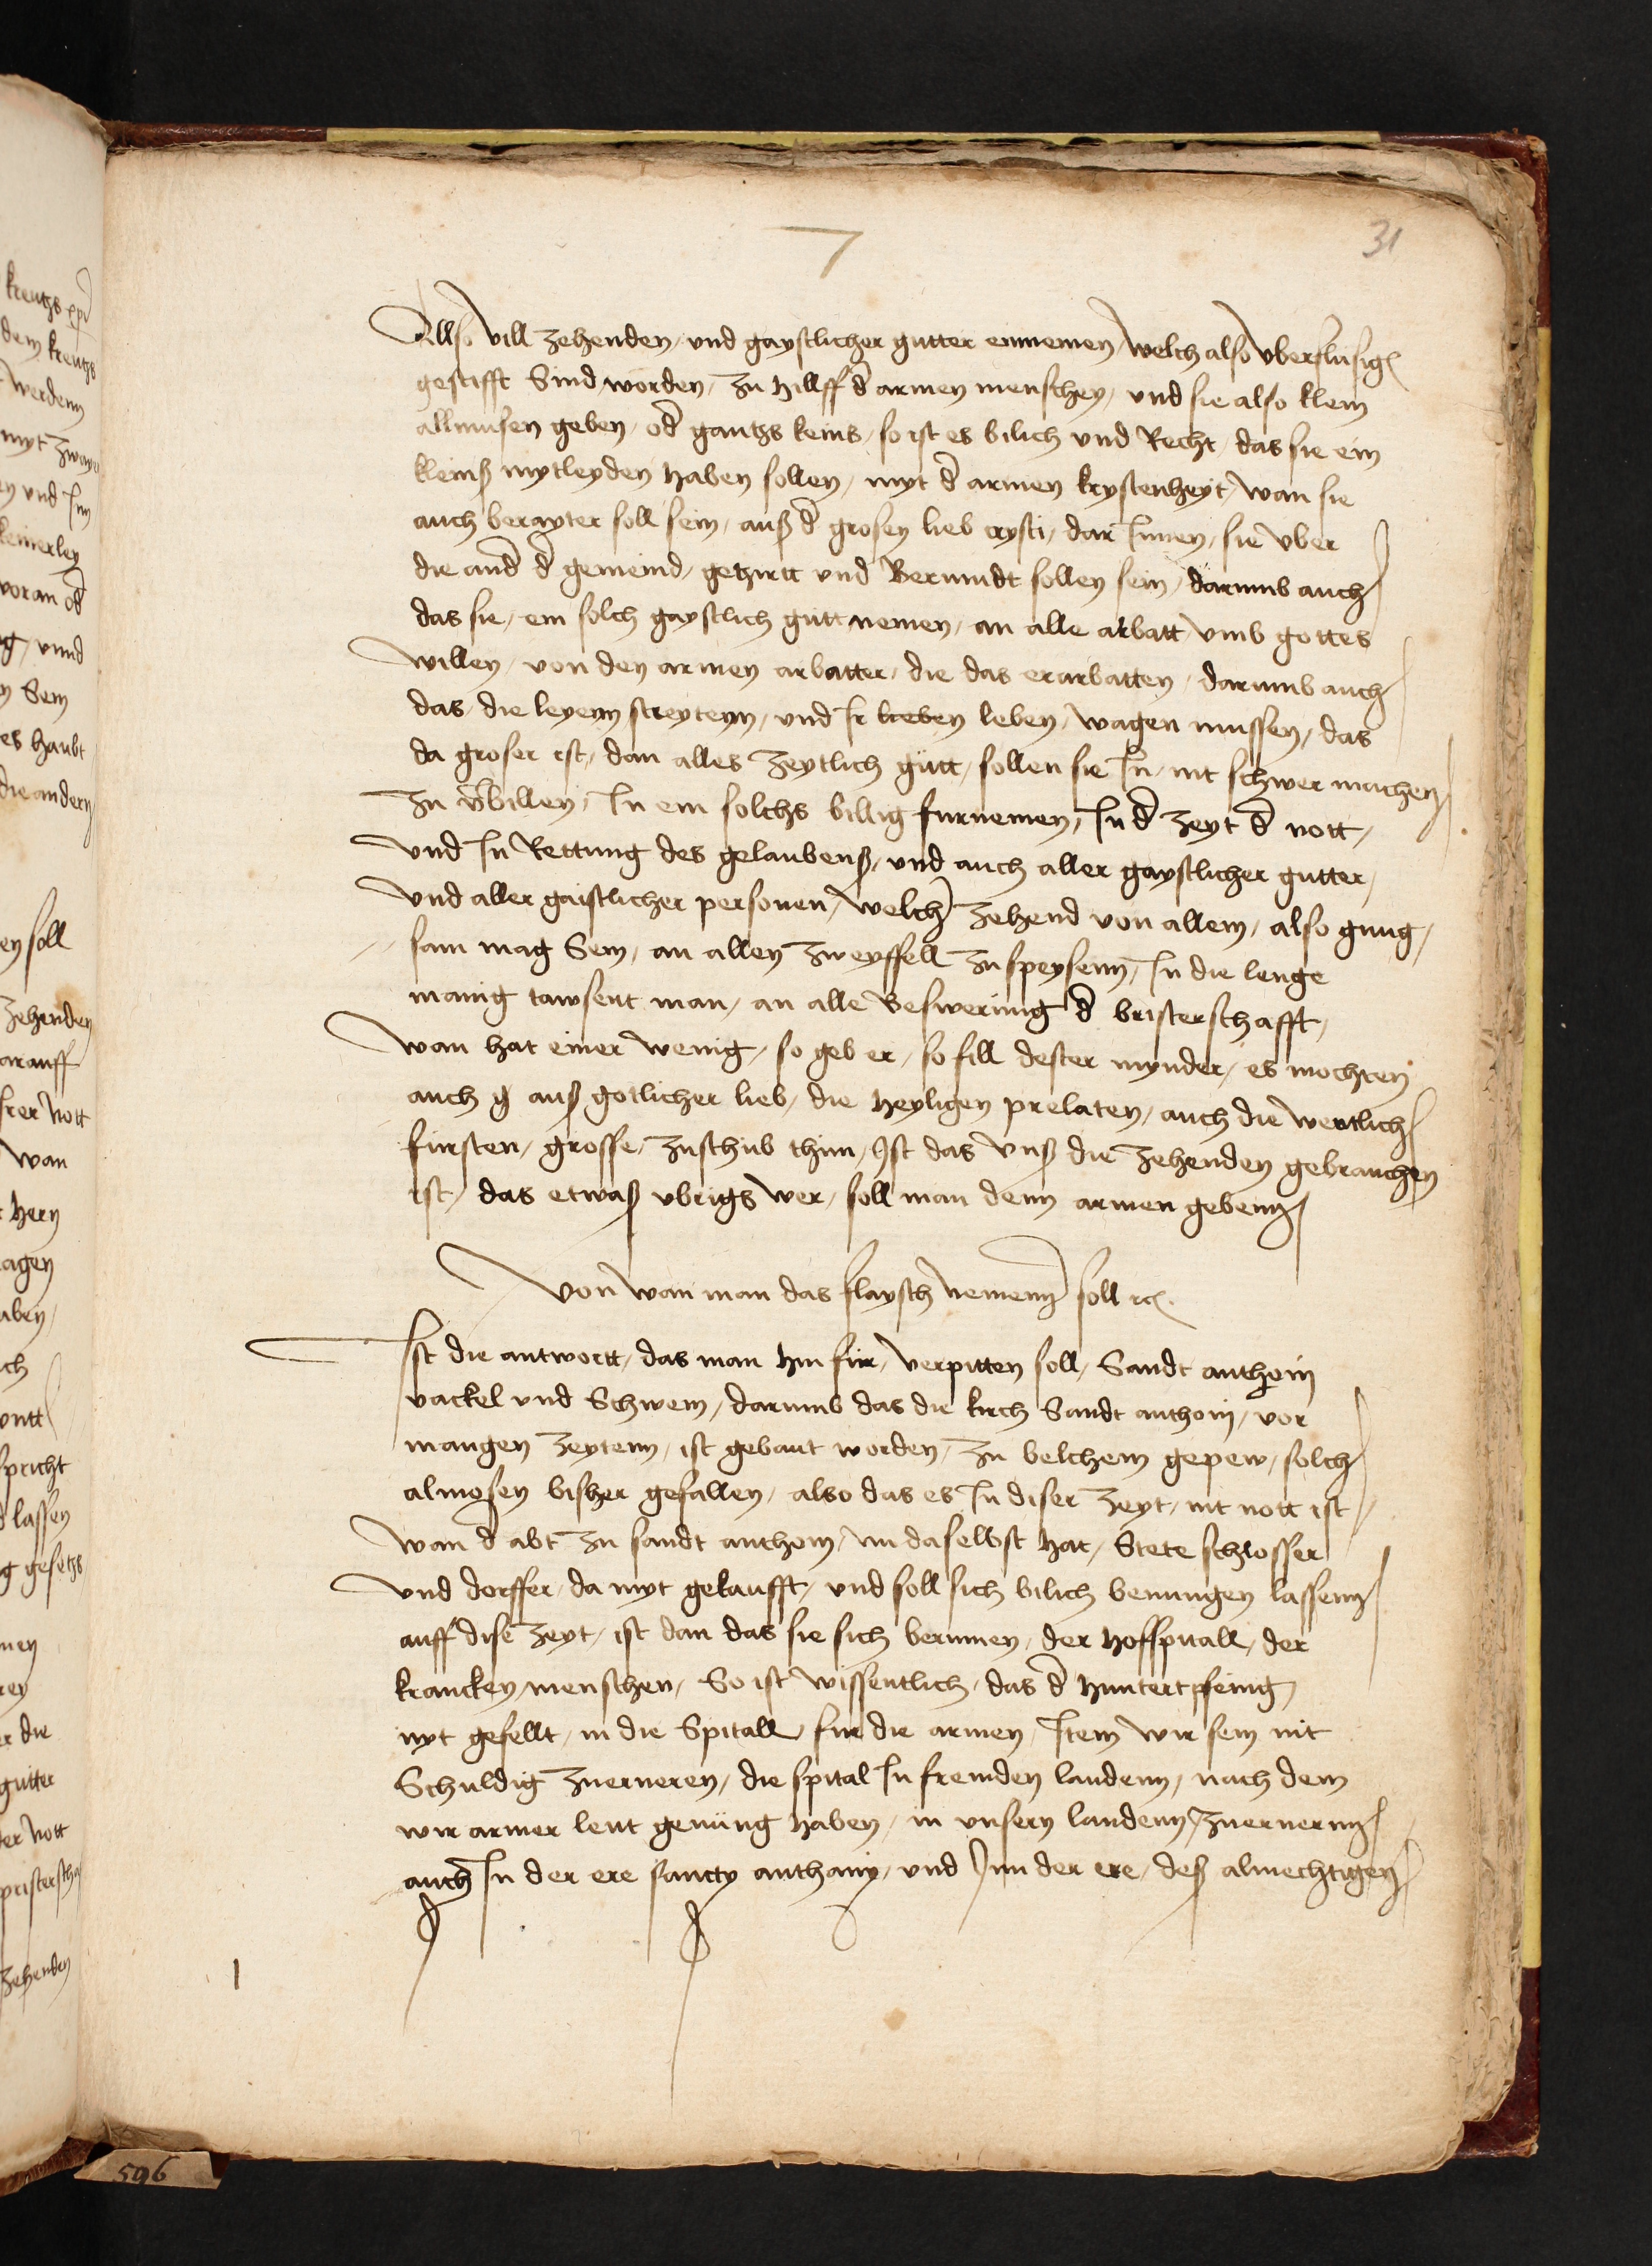 31
Allso vill zehenden, und gaystlicher gutter einnemen, welch also uberflusig
gestifft Sind worden, zu hillff d armen menschen, und sie also klein
allmusen geben, od gantzs keins, so ist es bilich und Recht, das sie ein
kleinß mytleyden haben sollen, myt d armen krystenheyt, wan sie
auch berayter soll sein, auß d grosen lieb crysti, dar Innen, sie uber
die and d gemeind, gezirtt und Berumdt sollen sein, darumb auch
das sie, ein solch gaystlich gutt nemen, an alle arbatt umb gottes
willen, von den armen arbatter, die das erarbatten, darumb auch
das, die leyenn streytenn, und Ir leben, wagen mussen, das
da groser ist, dan alles zeytlich gutt, sollen sie In, nit schwer machen
zu vbillen, In ein solchs billig furnemen, In d zeyt d nott,
und In Rettung des gelaubenß, und auch aller gaystlicher gutter,
und aller gaistlicher personen, welch zehend von allem, also gnug,
sam mag Sein, an allen zweyffell zu speysenn, In die lenge
manig tawsent man, an alle Beswerung d bristerschafft,
wan hat einer wenig, so geb er, so fill dester mynder, es mochten
auch auß gotlicher lieb, die heyligen prelaten, auch die wertlich
fursten, grosse, zuschub thun, Ist das Vnß die zehenden gebrauchen
ist, das etwaß ubrigs wer, soll man denn armen gebenn
Von wan man das flaysch nemenn soll rc.
Ist die antwortt, das man hin fur, verpitten soll, Sandt anthoin
vackel und Schwein, darumb das die kirch Sandt anthoin, vor
mangen zeytenn, ist gebaut worden, zu belchem gepew, solch
almosen bisher gefallen, also das es In diser zeyt, nit nott ist
wan d abt zu sandt anthoin, im daselbst hat, Stete schlosser
und dorffer, da myt gekaufft, und soll sich bilich benungen lassenn
auff dise zeyt, ist dan das sie sich berumen, der hoffspitall, der
krancken menschen, So ist wissentlich, das d huntert pfenig,
nyt gefellt, in die Spitall, fur die armen, Item wir sein nit
Schuldig zuerneren, die spital In fremden landenn, nach dem
wir armer leut genüng haben, in unsern landenn, zuernernn
auch In der ere sancty anthony, und Inn der ere, deß almechtigen
596